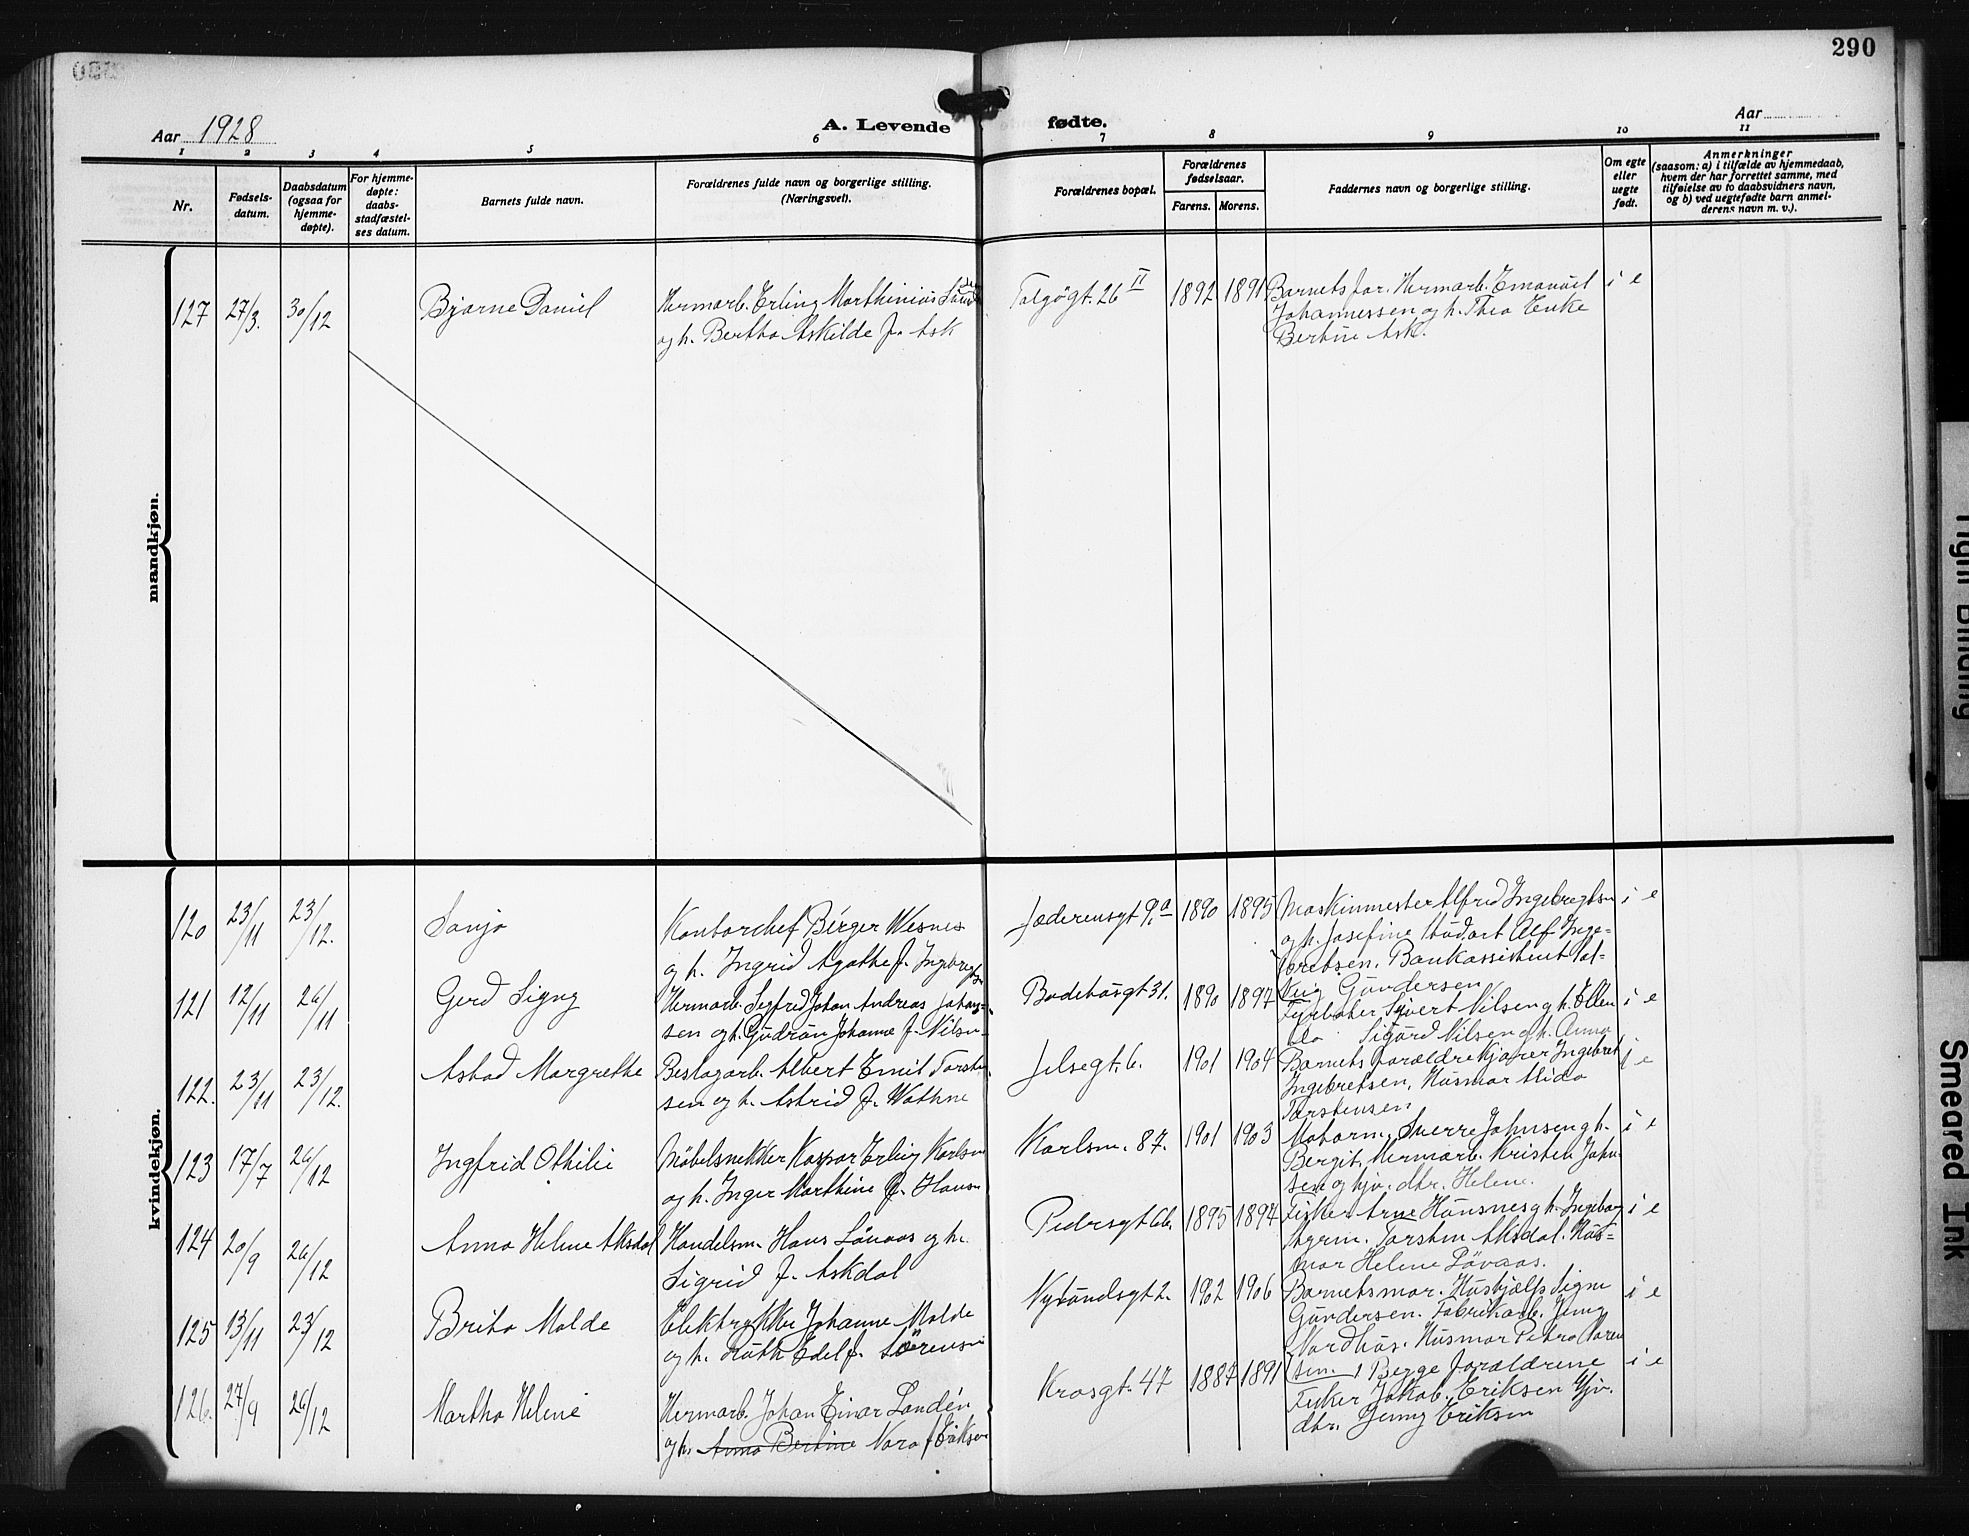 290
Aar 1928
A. Levende fødte.
Aar
1 2 3 4 5 6 7 8 9 10 11
Nr.
Fødsels-
datum.
Daabsdatum
(ogsaa for
hjemme-
døpte).
For hjemme-
døpte:
daabs-
stadfæstel-
ses datum.
Barnets fulde navn.
Forældrenes fulde navn og borgerlige stilling.
(Næringsvei).
Forældrenes bopæl.
Forældrenes
fødselsaar.
Farens. Morens.
Faddernes navn og borgerlige stilling.
Om egte
eller
uegte
født.
Anmerkninger
(saasom: a) i tilfælde av hjemmedaab,
hvem der har forrettet samme, med
tilføielse av to daabsvidners navn,
og b) ved uegtefødte barn anmel-
derens navn m. v.).
mandkjøn.
127 27/3. 30/12 Bjarne Daniel
Hermarb. Erling Marthinius
og h. Bertha Askilde f. Ask
Talgøgt. 26 II 1892 1891
Barnets far. Hermarb. Emanuel
Johannessen og h. Thea Enke
Bertine Ask.
i e
kvindekjøn.
120 23/11 23/12. Sonja
Kontorchef Berger Wesnes
og h. Ingrid Agathe f. Ingebregtsn
Jæderensgt 9.a 1890 1895
Maskinmester Alfred Ingebregtsen
og h. Josefine Alf Inge-
bretsen. Bankassistent
Gundersen
i e
121 12/11 26/11 Gerd Signy
Hermarb. Segfred Johan Andreas Johan-
sen og h. Gudrun Johanne f. Nilsen
Bodehusgt 31. 1890 1897
Fyrbøter Sivert Nilsen g h. Ellen
Sigurd Nilsen g h. Anna
i e
122. 23/11 23/12. Astad Margrethe
Beslagarb. Albert Emil Torsten-
sen og h. Astrid f. Wathne
Jelsegt. 6. 1901 1904
Barnets forældre Kjører Ingebret
Ingebretsen, Husmor Alida
Torstensen
i e
123 17/7 26/12 Ingfrid Othilie
Møbelsnekker Kaspar Erling Karlsen
og h. Inger Marthine f. Hansn
Karlsm. 87. 1901 1903
Motorm. Sverre Johnsen g h.
Bergit, Hermarb. Kristen John-
sen og hjv. dtr. Helene.
i e
124 20/9 26/12 Anna Helene Aksdal
Handelsm. Hans Løvaas og h.
Sigrid f. Askdal
Pedersgt 66. 1895 1897
Fisker Arne Hausnes g h. Ingeborg
Agrm. Torsten Aksdal. Hus-
mor Helene Løvaas.
i e
125 13/11 23/12 Brita Molde
Elektrykker Johanne Molde
og h. Ruth Edel f. Sørensen
Nylundsgt 2. 1902 1906
Barnets mor. Hushjælp Signe
Gundersen. Fabrikarb. Jenny
Nordhus. Husmor Petra Soren
sen.
i e
126. 27/9 26/12 Martha Helene
Hermarb. Johan Einar Landén
og h. Anna Bertine Nora f Eriksen
Krosgt. 47 1887 1891
Begge forældrene
Fisker Jakob Eriksen Hjv.
dtr. Jenny Eriksen
i e
Tight Binding
Smeared Ink